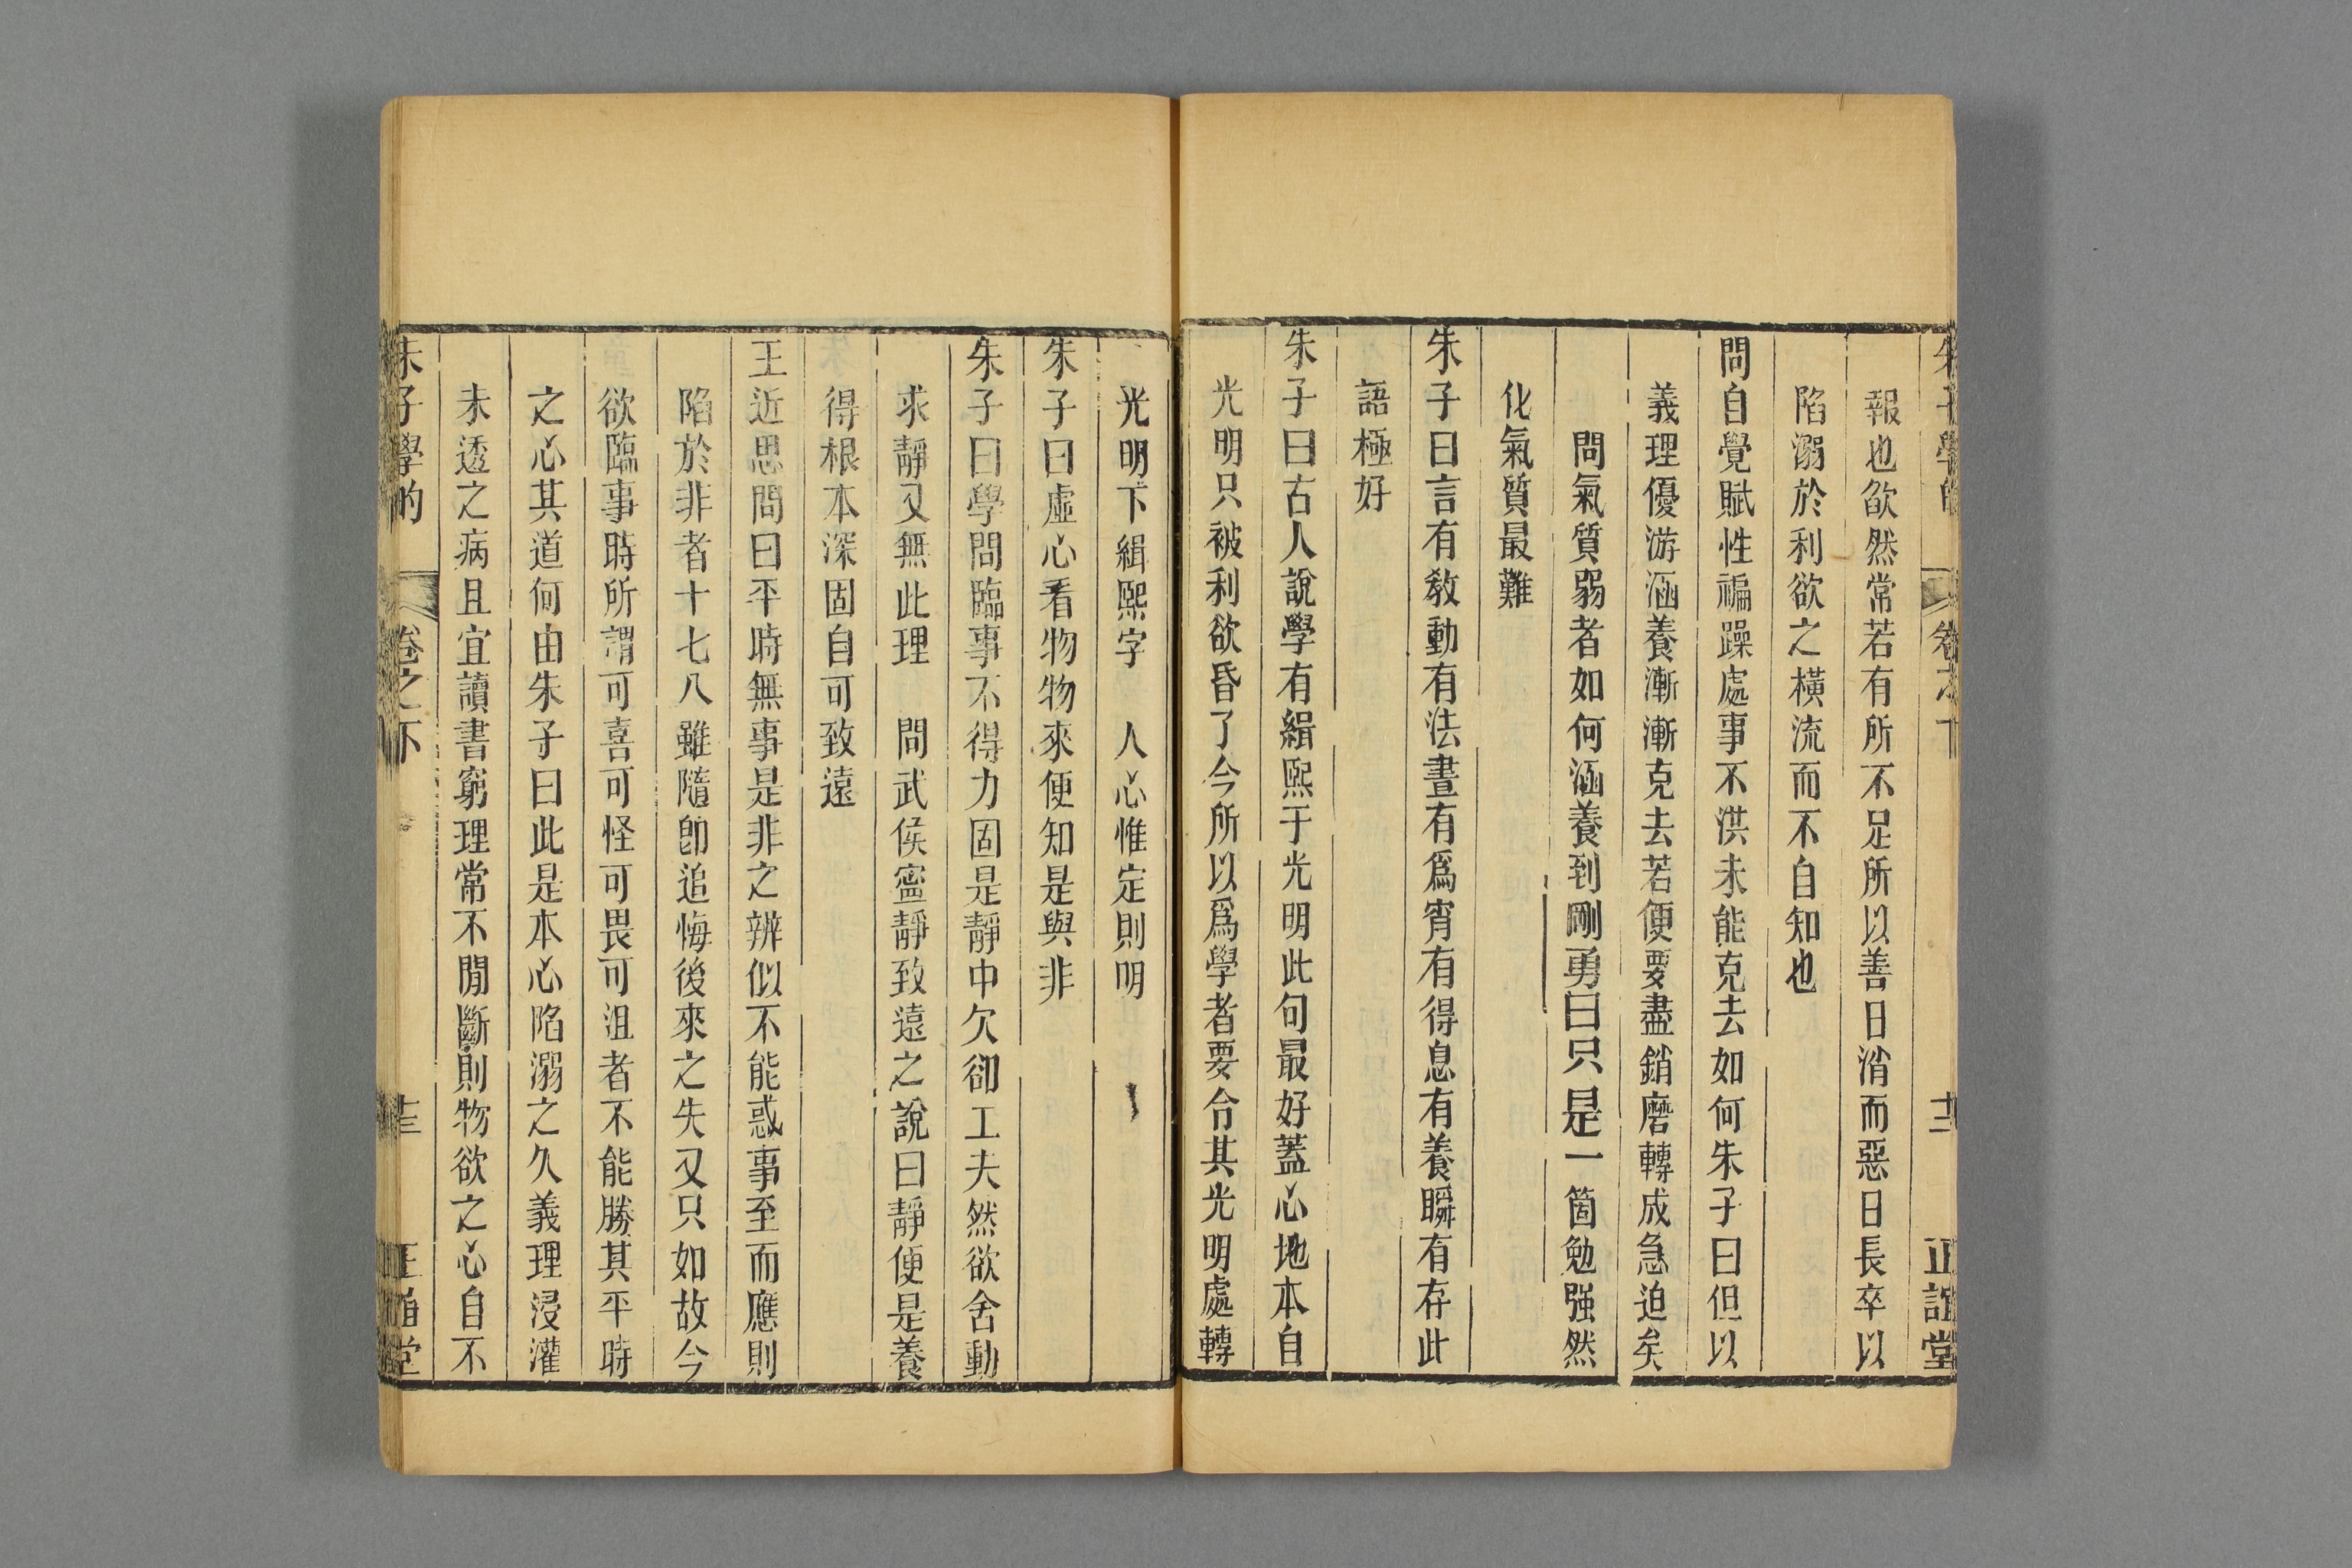 朱子學的 卷之下 十二 正誼堂
報也欿然常若有所不足所以善日消而惡日長卒以
陷溺於利欲之橫流而不自知也
問自覺賦性褊躁處事不洪未能克去如何朱子曰但以
義理優游涵養漸漸克去若便要盡銷磨轉成急迫矣
問氣質弱者如何涵養到剛勇曰只是一箇勉强然
化氣質最難
朱子曰言有敎動有法晝有爲宵有得息有養瞬有存此
語極好
朱子曰古人說學有緝熙于光明此句最好蓋心地本自
光明只被利欲昏了今所以爲學者要令其光明處轉
光明下緝熙字 人心惟定則明
朱子曰虛心看物物來便知是與非
朱子曰學問臨事不得力固是靜中欠卻工夫然欲舍動
求靜又無此理 問武侯寧靜致遠之說曰靜便是養
得根本深固自可致遠
王近思問曰平時無事是非之辨似不能惑事至而應則
陷於非者十七八雖隨卽追悔後來之失又只如故今
欲臨事時所謂可喜可怪可畏可沮者不能勝其平時
之心其道何由朱子曰此是本心陷溺之久義理浸灌
未透之病且宜讀書窮理常不閒斷則物欲之心自不
朱子學的 卷之下 十三 正誼堂